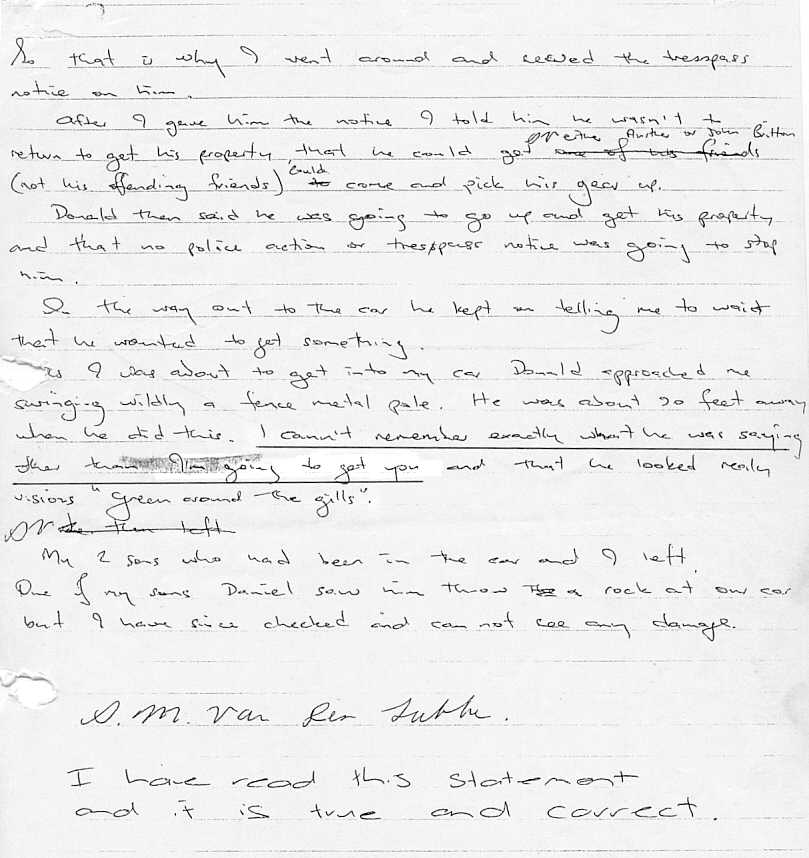 So that is why I went around and served the tresspass
notice on him.
After I gave him the notice I told him he wasn't to
either or John Britton
return to get his property, that he could get one of his friends
(not his offending friends) could to come and pick his gear up.
Donald then said he was going to go up and get his property
and that no police action or tresspass notice was going to stop
him.
On the way out to the car he kept on telling me to wait
that he wanted to get something.
As I was about to get into my car Donald approached me
swinging wildly a fence metal pole. He was about 20 feet away
when he did this. I cann't remember exactly what he was saying
than I'm going to get you and that he looked really
visious "Green around the gills".
then left
My 2 sons who had been in the car and I left.
One of my sons Daniel saw him throw The a rock at our car
but I have since checked and can not see any damage.
S. M. Van Der Lubbe.
I have read this statement
and it is true and correct.